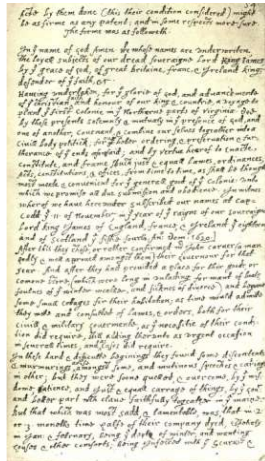 selve by them done (this their condition considered) might
be as firme as any patent; and in some respects more sure.
The forme was as followeth.
In yͤ name of god Amen. We whose names are underwriten,
the loyall subjects of our dread soveraigne Lord King James
by yͤ grace of god, of great Britaine, franc, & Ireland king,
defender of yͤ faith, &c.
Haveing undertaken, for yͤ glorie of god, and advancemente
of yͤ christian faith and honour of our king & countrie, a voyage to
plant yͤ first colonie in yͤ Northerne parts of Virginia. Doe
by these presents solemnly & mutualy in yͤ presence of god, and
one of another, covenant, & combine our selves togeather into a
civill body politick; for our better ordering, & preservation & fur=
therance of yͤ ends aforesaid; and by vertue hearof to enacte,
constitute, and frame such just & equall lawes, ordinances,
Acts, constitutions, & offices, from time to time, as shall be thought
most meete & convenient for yͤ generall good of yͤ Colonie: unto
which we promise all due submission and obedience. In witnes
wherof we have hereunder subscribed our names at cap=
Codd yͤ ·11· of November, in yͤ year of yͤ raigne of our soveraigne
Lord king James of England, france, & Ireland yͤ eighteenth
and of Scotland yͤ fiftie fourth. Anº: Dom ·1620·
After this they chose, or rather confirmed mr John carver (a man
godly & well approved amongst them) their Governour for that
year. And after they had provided a place for their goods or
comone store, (which were long in unlading for want of boats,
foulnes of yͤ winter weather, and sicknes of diverce) and begune
some small cottages for their habitation; as time would admitte
they mette and consulted of lawes, & orders, both for their
civill, & military Govermente, as yͤ necessitie of their condi=
tion did require, still adding therunto as urgent occasion
in severall times, and as cases did require.
In these hard & difficulte beginings they found some discontents
& murmurings arise amongst some, and mutinous speeches & cariags
in other; but they were soone quelled, & overcome, by yͤ wis=
dome, patience, and just & equall carrage of things, by yͤ Govʳ
and better part wᶜʰ clave faithfully togeather in yͤ maine.
but that which was most sadd, & lamentable, was, that in ·2·
or ·3· moneths time halfe of their company dyed, espetialy
in Jan: & february, being yͤ depth of winter, and wanting
houses & other comforts; being infected with yͤ scurvie &